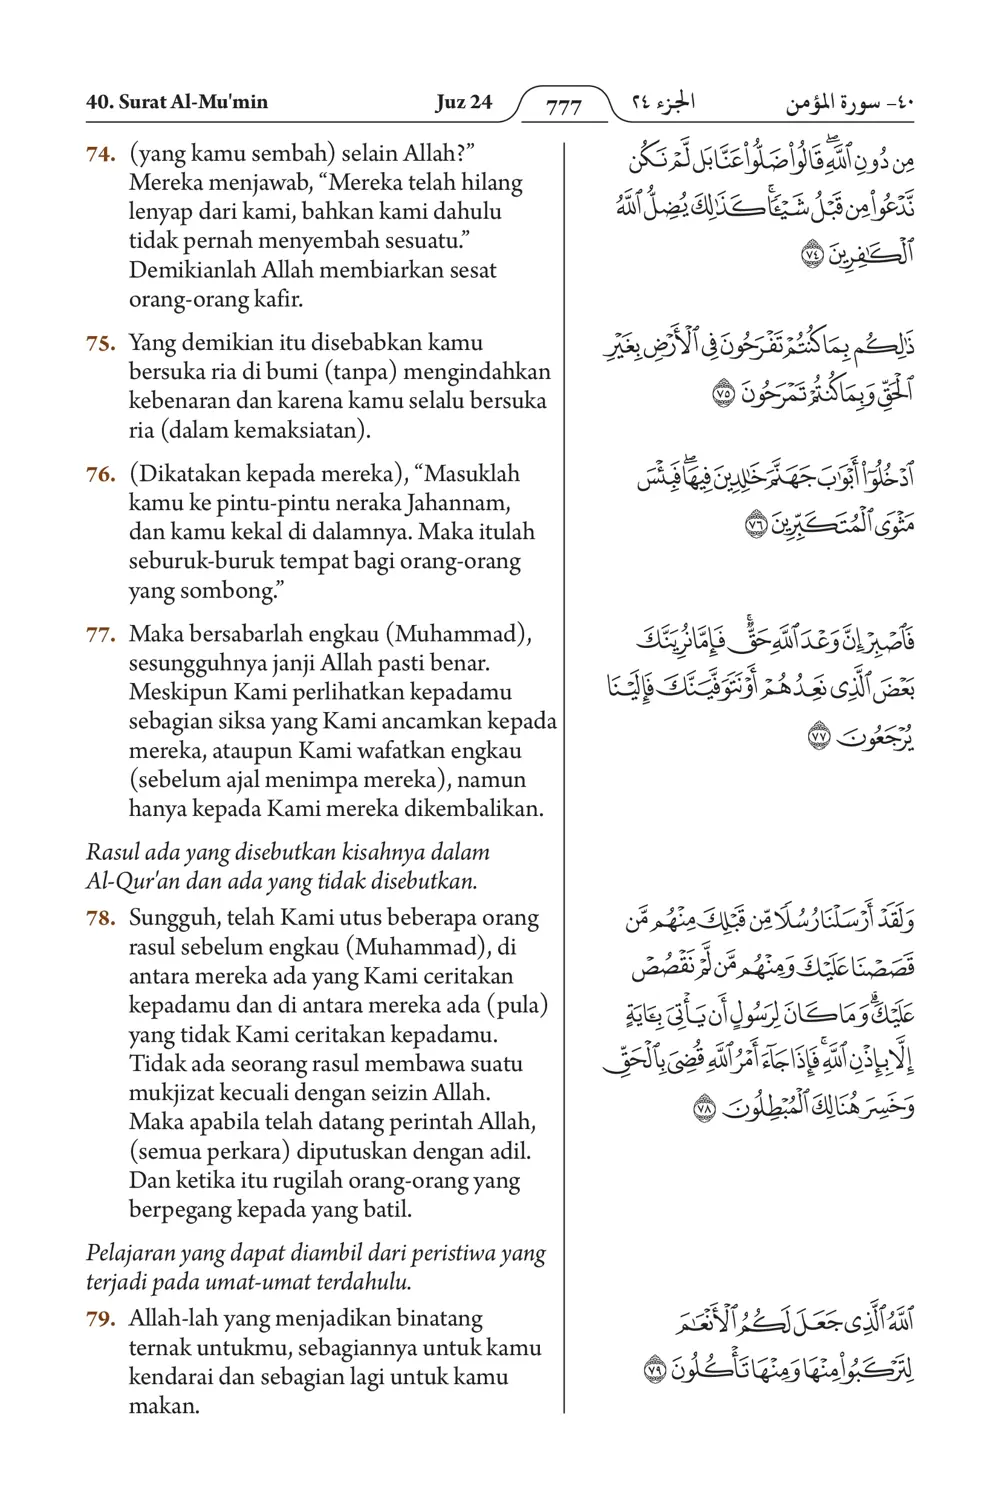 40. Surat Al-Mu'min Juz 24 777 الجزء ٢٤ ٤٠- سورة المؤمن
74. (yang kamu sembah) selain Allah?”
Mereka menjawab, “Mereka telah hilang
lenyap dari kami, bahkan kami dahulu
tidak pernah menyembah sesuatu.”
Demikianlah Allah membiarkan sesat
orang-orang kafir.
مِن دُونِ ٱللَّهِۖ قَالُوا۟ ضَلُّوا۟ عَنَّا بَل لَّمْ نَكُن
نَّدْعُوا۟ مِن قَبْلُ شَيْـًٔاۚ كَذَٰلِكَ يُضِلُّ ٱللَّهُ
ٱلْكَـٰفِرِينَ ٧٤
75. Yang demikian itu disebabkan kamu
bersuka ria di bumi (tanpa) mengindahkan
kebenaran dan karena kamu selalu bersuka
ria (dalam kemaksiatan).
ذَٰلِكُم بِمَا كُنتُمْ تَفْرَحُونَ فِى ٱلْأَرْضِ بِغَيْرِ
ٱلْحَقِّ وَبِمَا كُنتُمْ تَمْرَحُونَ ٧٥
76. (Dikatakan kepada mereka), “Masuklah
kamu ke pintu-pintu neraka Jahannam,
dan kamu kekal di dalamnya. Maka itulah
seburuk-buruk tempat bagi orang-orang
yang sombong.”
ٱدْخُلُوٓا۟ أَبْوَٰبَ جَهَنَّمَ خَـٰلِدِينَ فِيهَاۖ فَبِئْسَ
مَثْوَى ٱلْمُتَكَبِّرِينَ ٧٦
77. Maka bersabarlah engkau (Muhammad),
sesungguhnya janji Allah pasti benar.
Meskipun Kami perlihatkan kepadamu
sebagian siksa yang Kami ancamkan kepada
mereka, ataupun Kami wafatkan engkau
(sebelum ajal menimpa mereka), namun
hanya kepada Kami mereka dikembalikan.
فَٱصْبِرْ إِنَّ وَعْدَ ٱللَّهِ حَقٌّۚ فَإِمَّا نُرِيَنَّكَ
بَعْضَ ٱلَّذِى نَعِدُهُمْ أَوْ نَتَوَفَّيَنَّكَ فَإِلَيْنَا
يُرْجَعُونَ ٧٧
Rasul ada yang disebutkan kisahnya dalam
Al-Qur'an dan ada yang tidak disebutkan.
78. Sungguh, telah Kami utus beberapa orang
rasul sebelum engkau (Muhammad), di
antara mereka ada yang Kami ceritakan
kepadamu dan di antara mereka ada (pula)
yang tidak Kami ceritakan kepadamu.
Tidak ada seorang rasul membawa suatu
mukjizat kecuali dengan seizin Allah.
Maka apabila telah datang perintah Allah,
(semua perkara) diputuskan dengan adil.
Dan ketika itu rugilah orang-orang yang
berpegang kepada yang batil.
وَلَقَدْ أَرْسَلْنَا رُسُلًا مِّن قَبْلِكَ مِنْهُم مَّن
قَصَصْنَا عَلَيْكَ وَمِنْهُم مَّن لَّمْ نَقْصُصْ
عَلَيْكَۗ وَمَا كَانَ لِرَسُولٍ أَن يَأْتِىَ بِـَٔايَةٍ
إِلَّا بِإِذْنِ ٱللَّهِۚ فَإِذَا جَآءَ أَمْرُ ٱللَّهِ قُضِىَ بِٱلْحَقِّ
وَخَسِرَ هُنَالِكَ ٱلْمُبْطِلُونَ ٧٨
Pelajaran yang dapat diambil dari peristiwa yang
terjadi pada umat-umat terdahulu.
79. Allah-lah yang menjadikan binatang
ternak untukmu, sebagiannya untuk kamu
kendarai dan sebagian lagi untuk kamu
makan.
ٱللَّهُ ٱلَّذِى جَعَلَ لَكُمُ ٱلْأَنْعَـٰمَ
لِتَرْكَبُوا۟ مِنْهَا وَمِنْهَا تَأْكُلُونَ ٧٩